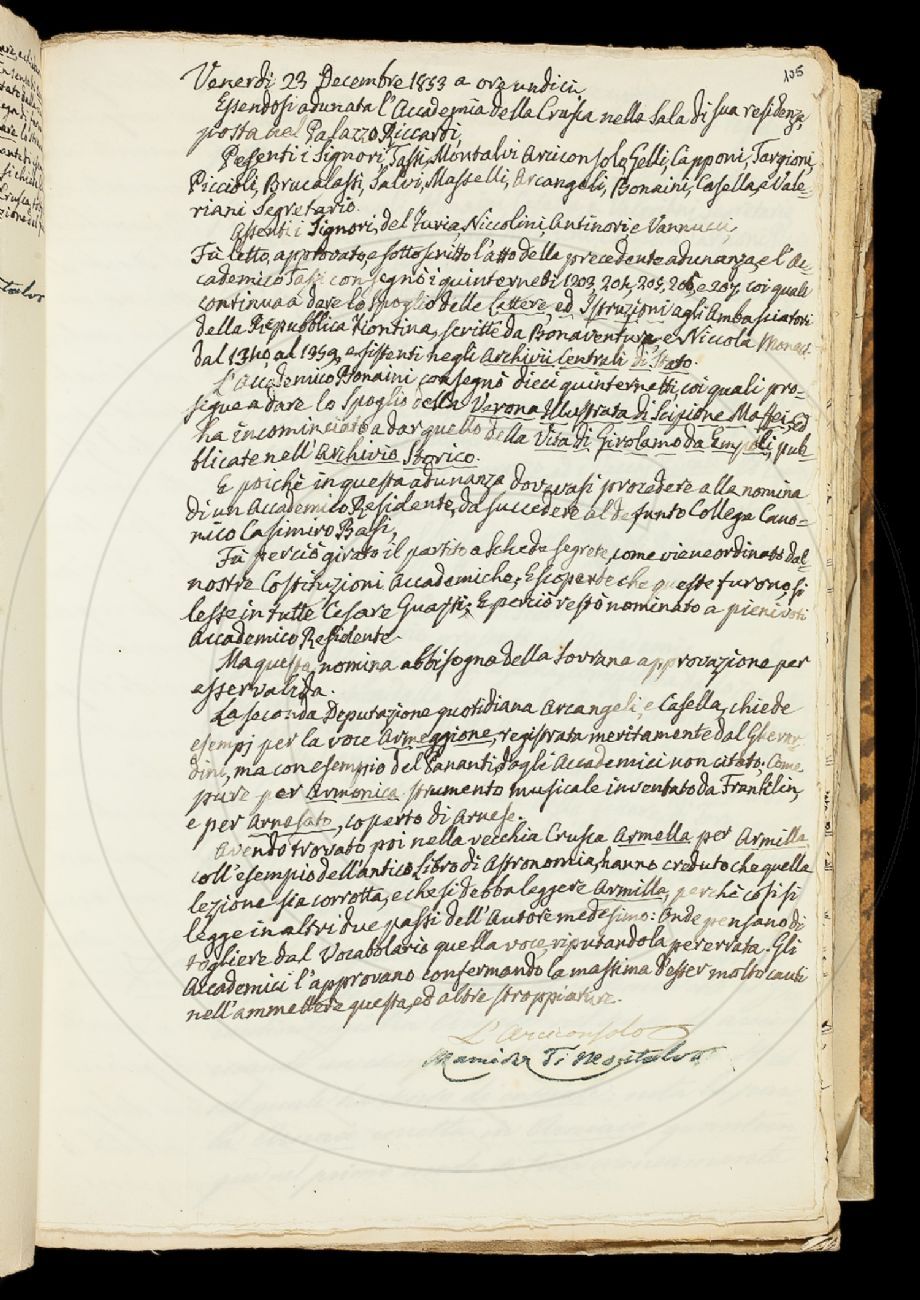 105
Venerdì 23 Decembre 1853 a ore undici
Essendosi adunata l'Accademia della Crusca nella Sala di sua residenza,
posta nel Palazzo Riccardi,
Presenti i Signori, Tassi, Montalvi Arciconsolo, Gelli, Capponi, Targioni,
Piccioli, Brucalassi, Salvi, Masselli, Arcangeli, Bonaini, Casella, e Vale=
riani Segretario.
Assenti i Signori, del Furia, Niccolini, Antinori e Vannucci,
Fù letto, approvato, e sottoscritto l'atto della precedente adunanza, e l'Ac=
cademico Tassi consegnò i quinternetti 203, 204, 205, 206, e 207 coi quali
continua a dare lo Spoglio delle Lettere, ed Istruzioni agli Ambasciatori
della Repubblica Fiorentina, scritte da Bonaventura, e Niccola Monaci
dal 1340 al 1359, esistenti negli Archivii Centrali di Stato.
L'Accademico Bonaini consegnò dieci quinternetti, coi quali pro=
segue a dare lo Spoglio della Verona Illustrata di Scipione Maffei, ed
ha incominciato a dar quello della Vita di Girolamo da Empoli, pub=
blicate nell'Archivio Storico.
E poichè in questa adunanza dovevasi procedere alla nomina
di un Accademico Residente, da succedere al defunto Collega Cano=
nico Casimiro Basi,
Fù perciò girato il partito a Schede segrete, come viene ordinato dal=
nostre Costituzioni Accademiche; E scoperte che queste furono, si
lesse in tutte Cesare Guasti; E perciò restò nominato a pieni voti
Accademico Residente.
Ma questa nomina abbisogna della Sovrana approvazione per
esser valida.
La seconda Deputazione quotidiana Arcangeli, e Casella, chiede
esempj per la voce Armeggione, registrata meritamente dal Gherar=
dini, ma con esempio del Pananti, dagli Accademici non citato; Come
pure per Armonica strumento musicale inventato da Franklin,
e per Arnesato, coperto di Arnese.
Avendo trovato poi nella vecchia Crusca Armella per Armilla,
coll'esempio dell'antico Libro di Astronomia, hanno creduto che quella
lezione sia corrotta, e che si debba leggere Armilla, perchè così si
legge in altri due passi dell'Autore medesimo: Onde pensano di
togliere dal Vocabolario quella voce, riputandola per errata. Gli
Accademici l'approvano confermando la massima d'esser molto cauti
nell'ammettere questa, ed altre stroppiature.
L'Arciconsolo